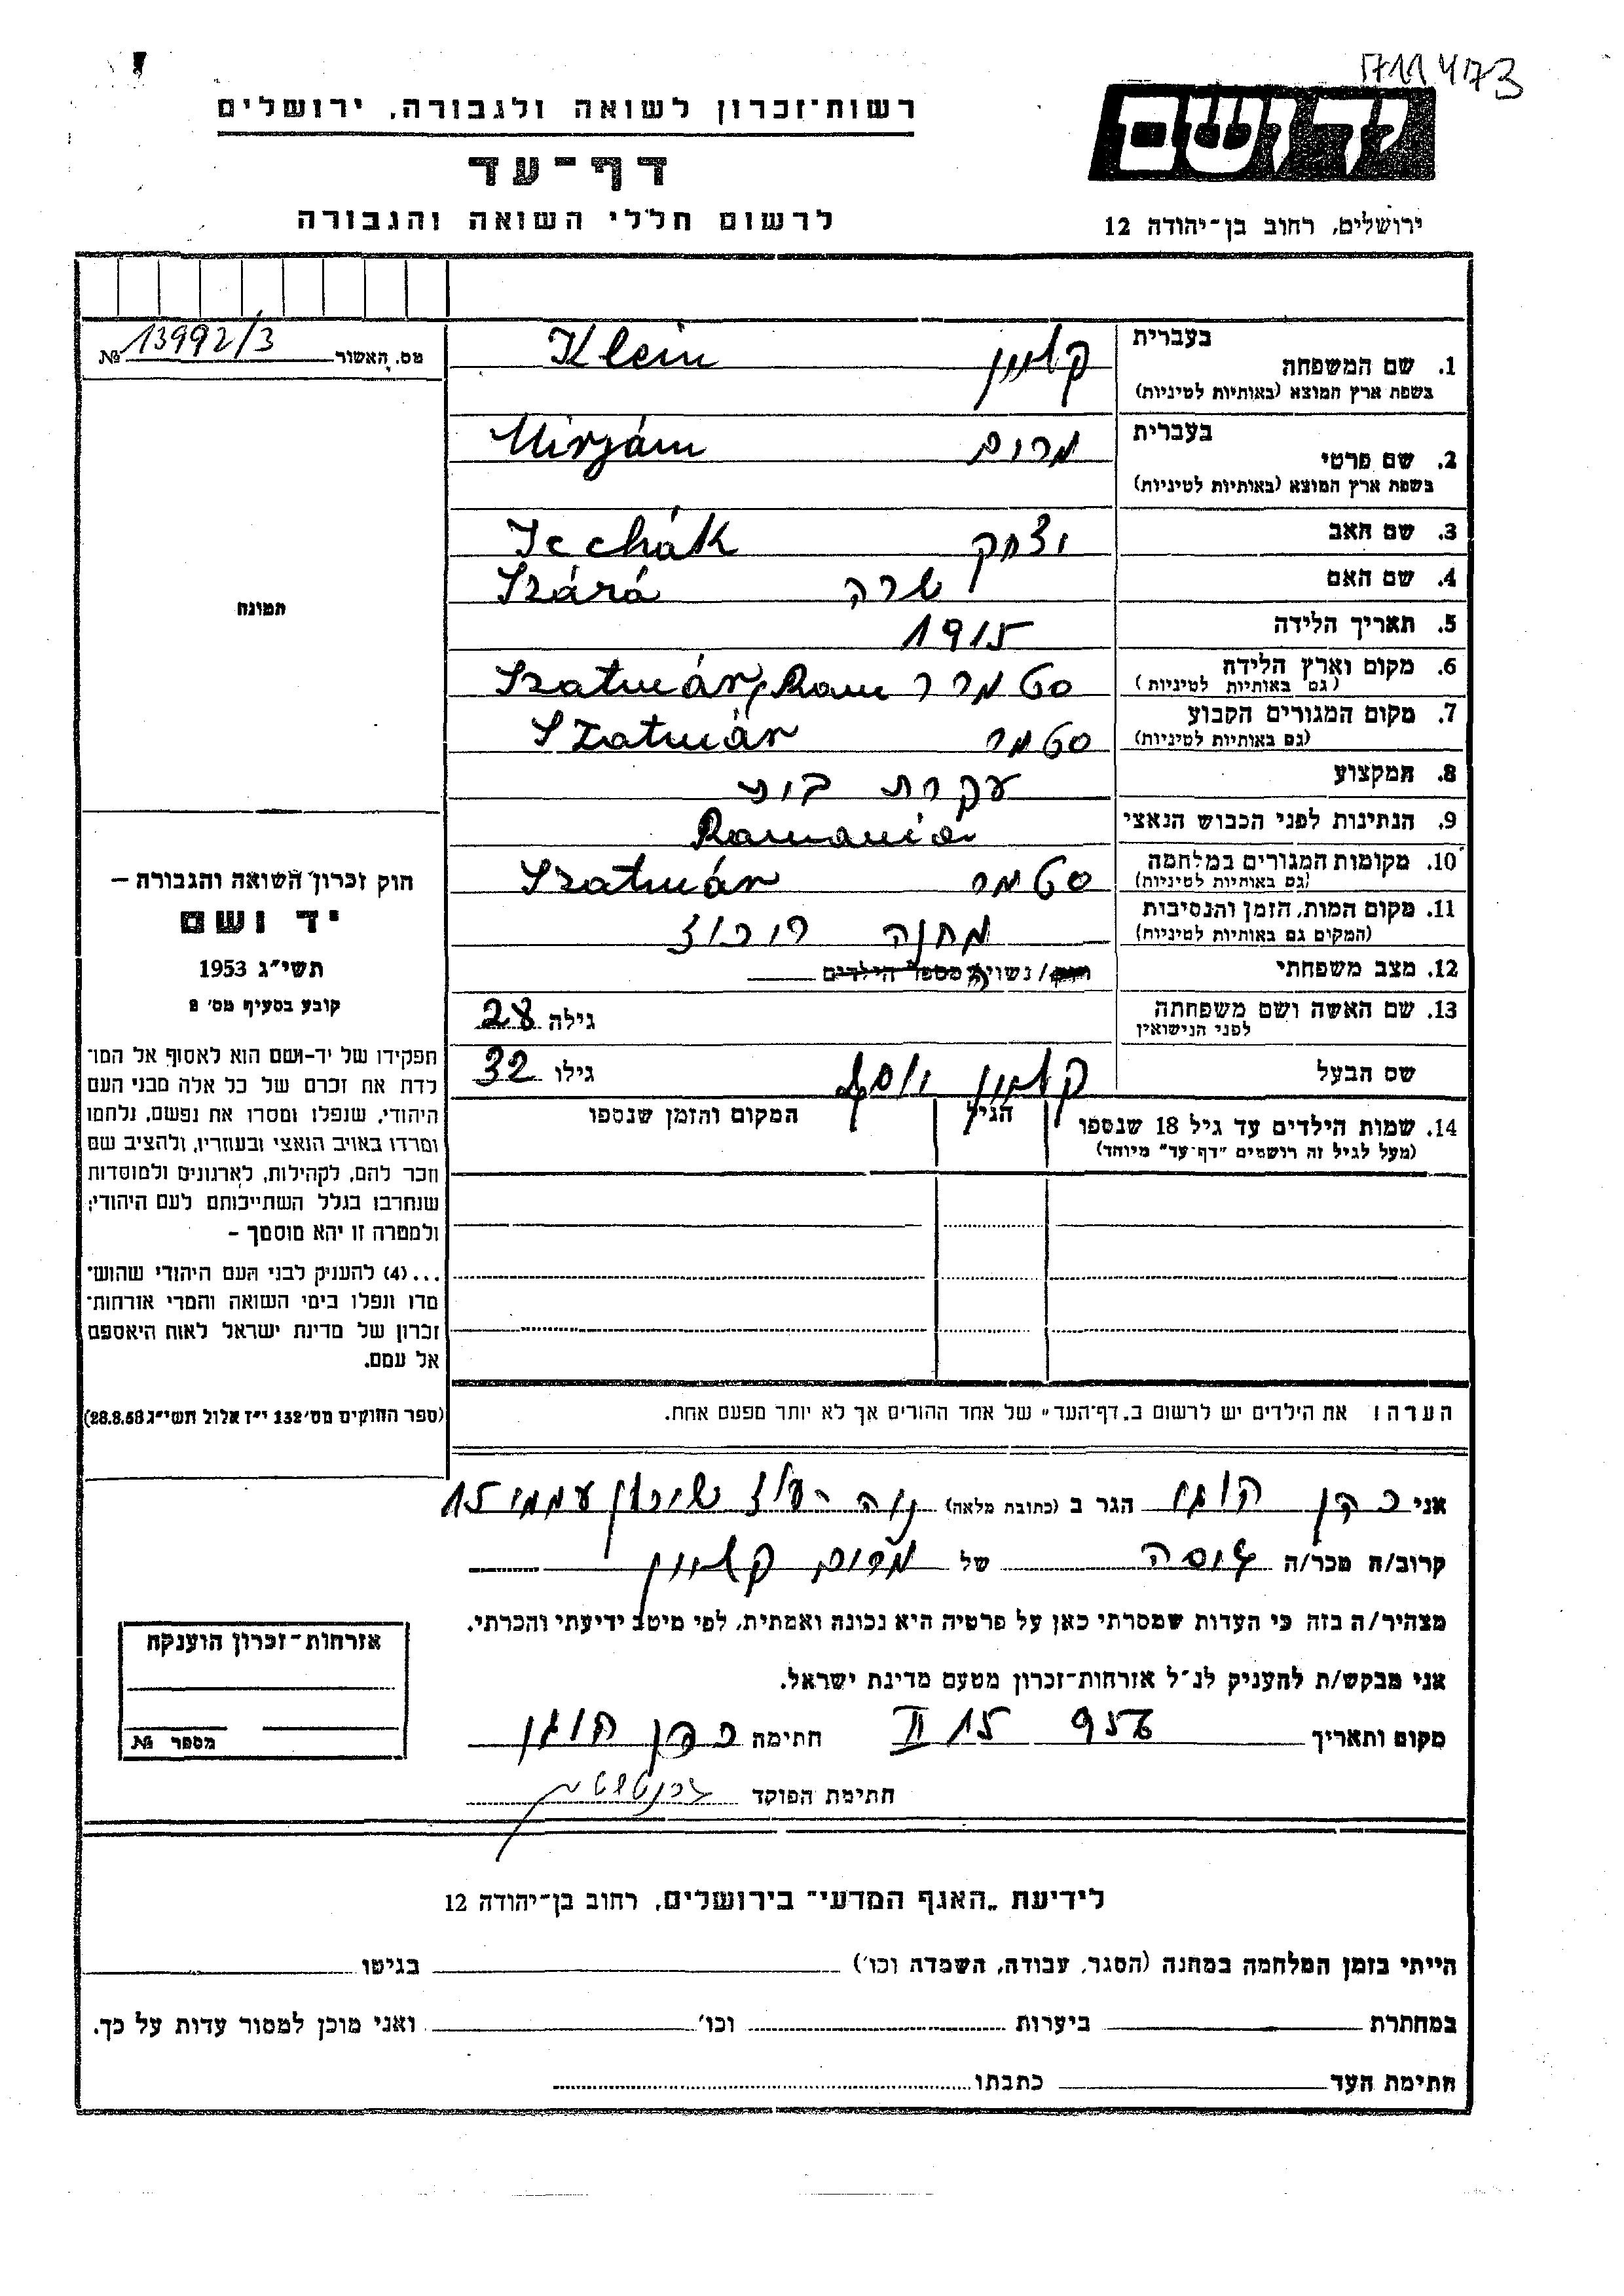 711473
רשות־זכרון לשואה ולגבורה, ירושלים
דף־עד
לרשום חללי השואה והגבורה
יד ושם
ירושלים, רחוב בן־יהודה 12
מס. האשור № 13992/3
תמונה
1. שם המשפחה בעברית קליין Klein
בשפת ארץ המוצא (באותיות לטיניות)
2. שם פרטי בעברית מרים Mirjám
בשפת ארץ המוצא (באותיות לטיניות)
3. שם האב יצחק Icchák
4. שם האם שרה Szárá
5. תאריך הלידה 1915
6. מקום וארץ הלידה סטמר Szatmár, Rom
(גם באותיות לטיניות)
7. מקום המגורים הקבוע סטמר Szatmár
(גם באותיות לטיניות)
8. המקצוע עקרת בית
9. הנתינות לפני הכבוש הנאצי Romania
10. מקומות המגורים במלחמה סטמר Szatmár
(גם באותיות לטיניות)
11. מקום המות, הזמן והנסיבות מחנה ריכוז
(המקום גם באותיות לטיניות)
12. מצב משפחתי רווק/ נשויה מספר הילדים
13. שם האשה ושם משפחתה גילה 28
לפני הנישואין
שם הבעל קליין יוסף גילו 32
14. שמות הילדים עד גיל 18 שנספו הגיל המקום והזמן שנספו
(מעל לגיל זה רושמים "דף־עד" מיוחד)
חוק זכרון השואה והגבורה –
יד ושם
תשי"ג 1953
קובע בסעיף מס' 2
תפקידו של יד-ושם הוא לאסוף אל המו־
לדת את זכרם של כל אלה מבני העם
היהודי, שנפלו ומסרו את נפשם, נלחמו
ומרדו באויב הנאצי ובעוזריו, ולהציב שם
וזכר להם, לקהילות, לארגונים ולמוסדות
שנחרבו בגלל השתייכותם לעם היהודי;
ולמטרה זו יהא מוסמך –
...(4) להעניק לבני העם היהודי שהוש־
מדו ונפלו בימי השואה והמרי אזרחות־
זכרון של מדינת ישראל לאות היאספם
אל עמם.
(ספר החוקים מס' 132 י"ז אלול תשי"ג 28.8.53)
הערה: את הילדים יש לרשום ב„דף־העד" של אחד ההורים אך לא יותר מפעם אחת.
אני כהן הגר ב (כתובת מלאה) נוה עוז שיכון עממי 15
קרוב/ה מכר/ה גיסה של מרים קליין
מצהיר/ה בזה כי העדות שמסרתי כאן על פרטיה היא נכונה ואמתית, לפי מיטב ידיעתי והכרתי.
אני מבקש/ת להעניק לנ"ל אזרחות־זכרון מטעם מדינת ישראל.
מקום ותאריך 956 15 II חתימה כהן
חתימת הפוקד
אזרחות־זכרון הוענקה
מספר №
לידיעת „האגף המדעי" בירושלים, רחוב בן־יהודה 12
הייתי בזמן המלחמה במחנה (הסגר, עבודה, השמדה וכו') בגיטו
במחתרת ביערות וכו' ואני מוכן למסור עדות על כך.
חתימת העד כתבתו